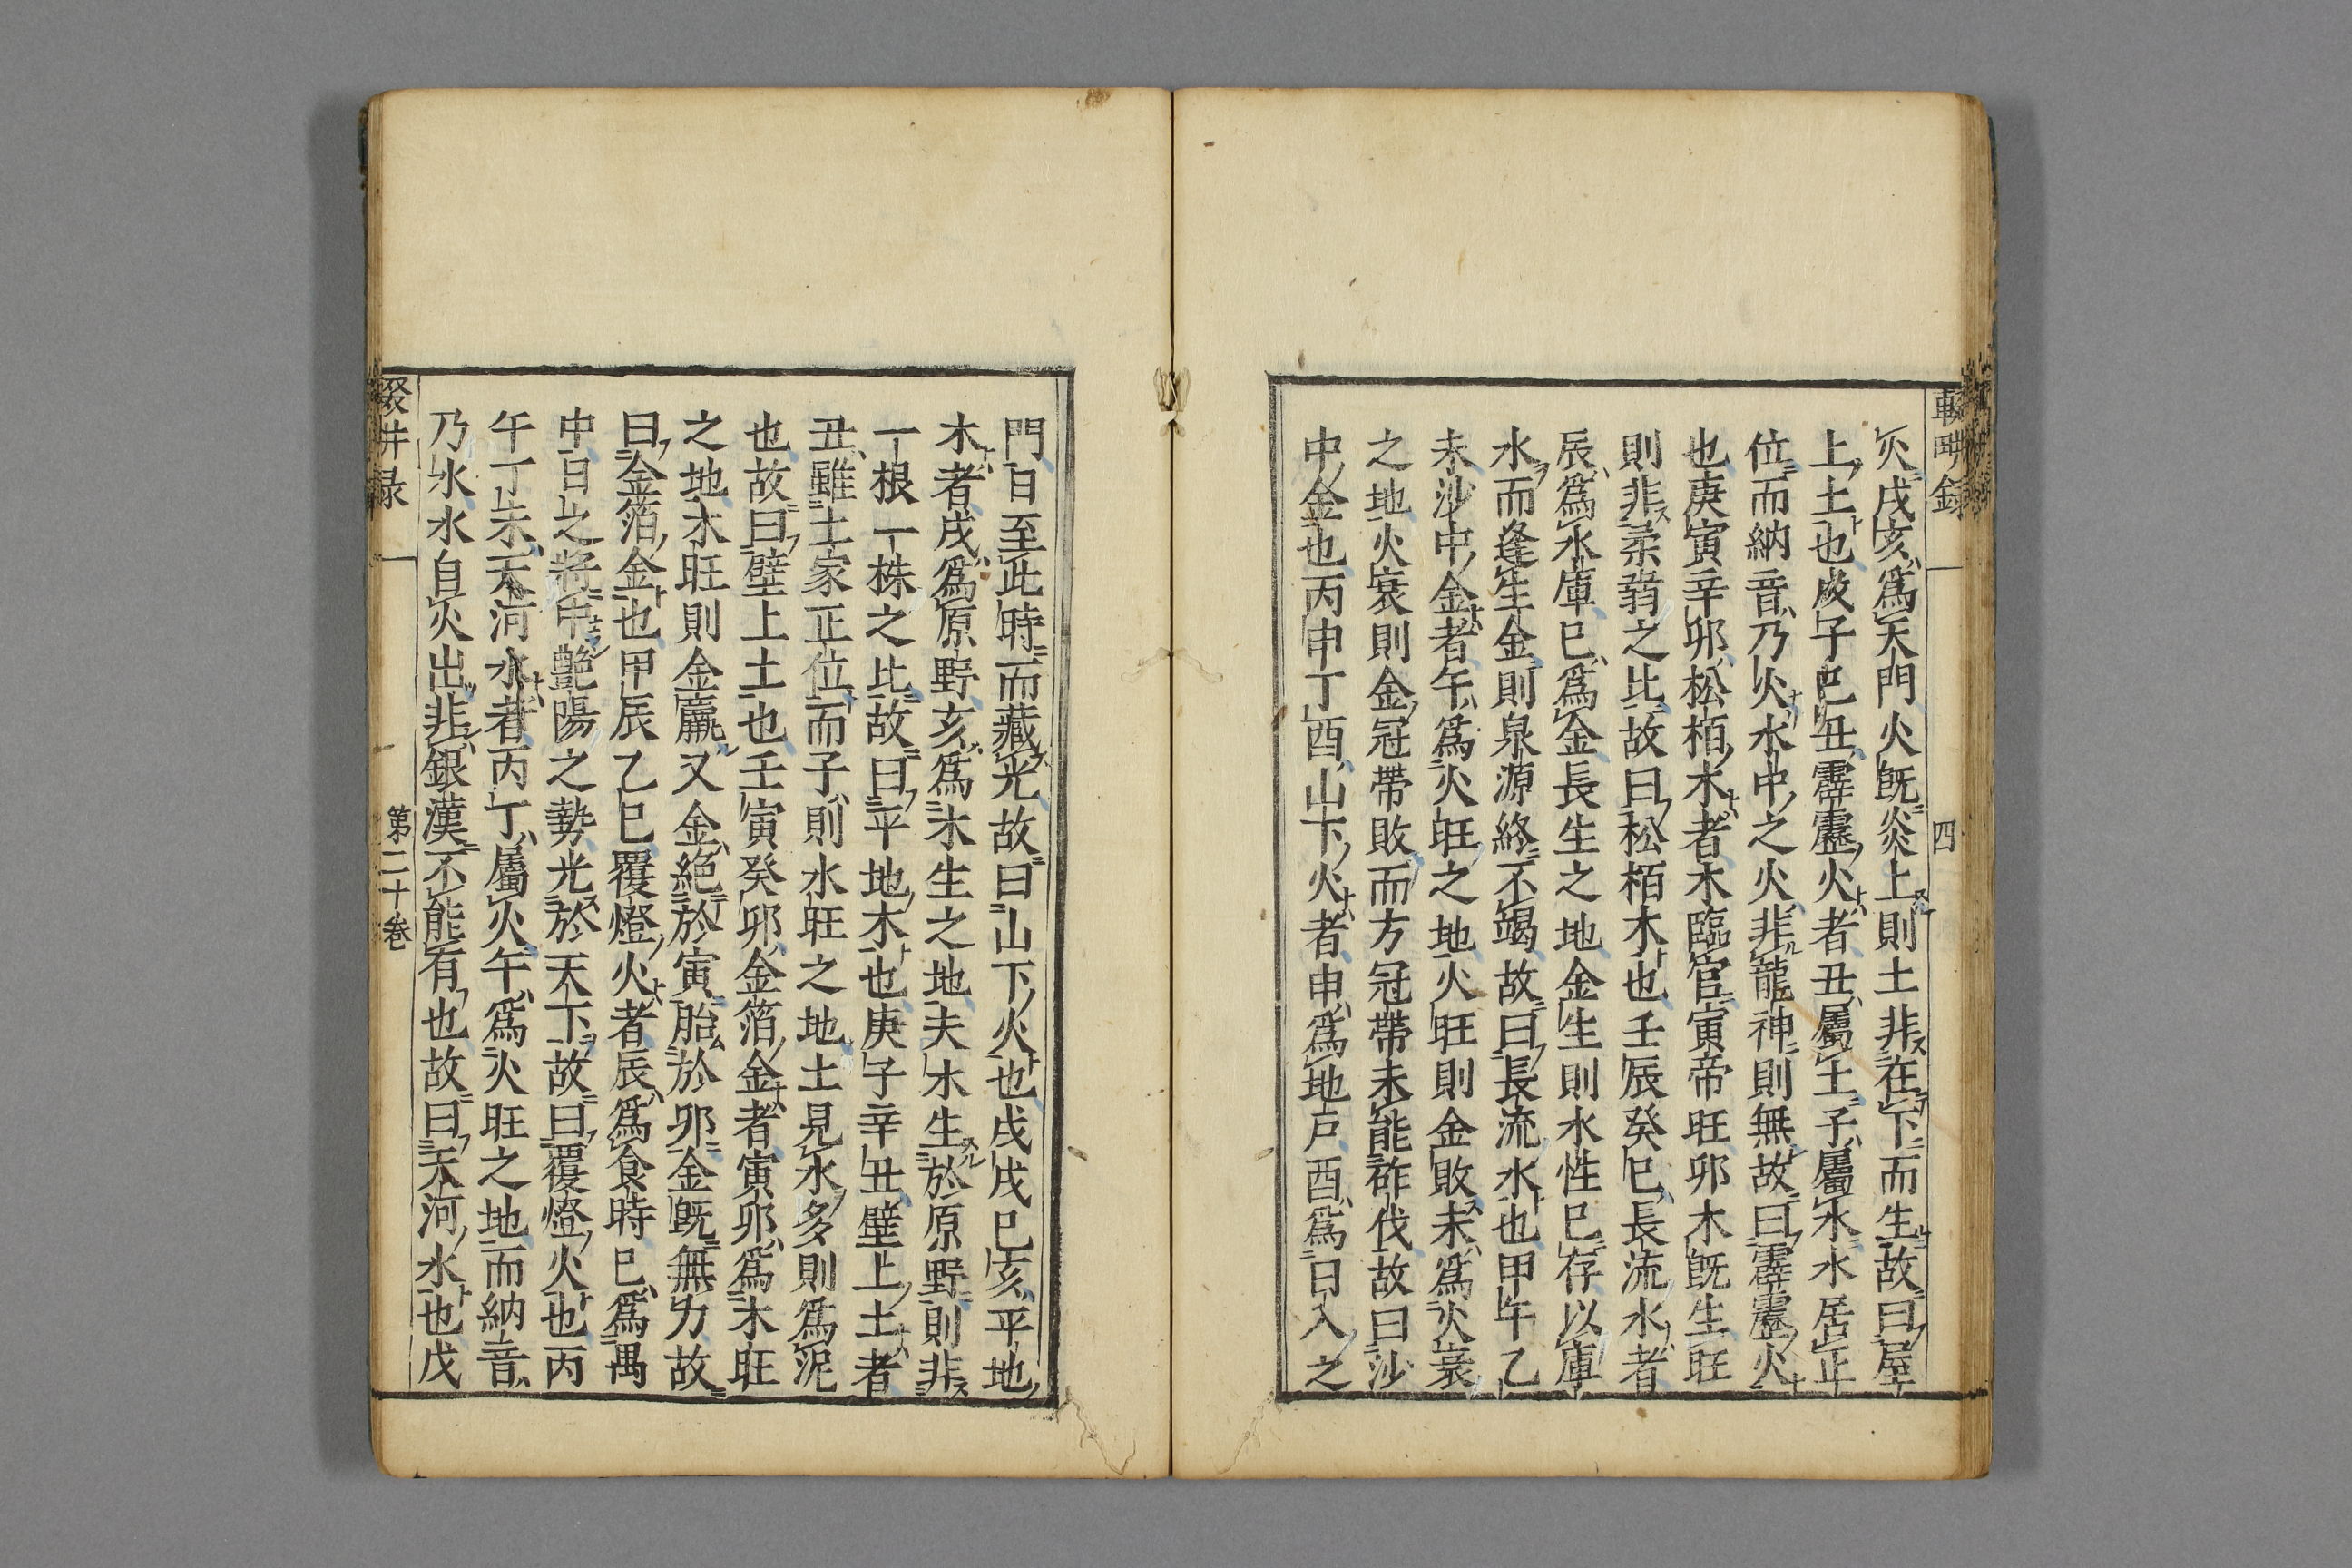 火戌亥爲天門火既炎上則土非在下而生故曰屋
上土也戊子己丑霹靂火者丑屬土子屬水水居正
位而納音乃火水中之火非龍神則無故曰霹靂火
也庚寅辛卯松栢木者木臨官寅帝旺卯木既生旺
則非柔弱之比故曰松栢木也壬辰癸巳長流水者
辰爲水庫巳爲金長生之地金生則水性已存以庫
水而逢生金則泉源終不竭故曰長流水也甲午乙
未沙中金者午爲火旺之地火旺則金敗未爲火衰
之地火衰則金冠帶敗而方冠帶未能砟伐故曰沙
中金也丙申丁酉山下火者申爲地戸酉爲日入之
四
門日至此時而藏光故曰山下火也戊戌己亥平地
木者戌爲原野亥爲木生之地夫木生於原野則非
一根一株之比故曰平地木也庚子辛丑壁上土者
丑雖土家正位而子則水旺之地土見水多則爲泥
也故曰壁上土也壬寅癸卯金箔金者寅卯爲木旺
之地木旺則金羸又金絕於寅胎於卯金既無力故
曰金箔金也甲辰乙巳覆燈火者辰爲食時巳爲禺
中日之將中艶陽之勢光於天下故曰覆燈火也丙
午丁未天河水者丙丁屬火午爲火旺之地而納音
乃水水自火出非銀漢不能有也故曰天河水也戊
第二十卷